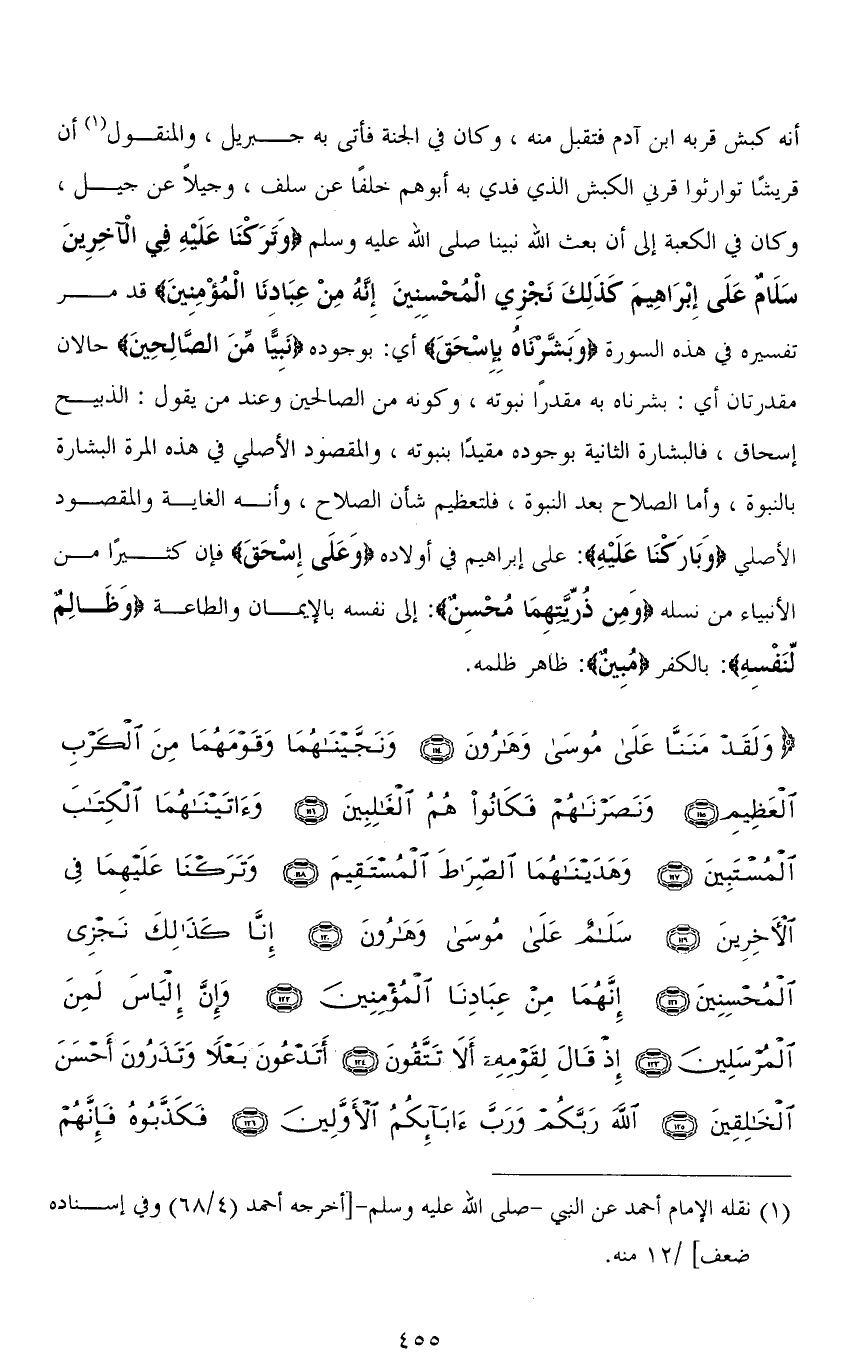 أنه كبش قربه ابن آدم فتقبل منه ، وكان في الجنة فأتى به جبريل ، والمنقول(١) أن
قريشًا توارثوا قرني الكبش الذي فدي به أبوهم خلفًا عن سلف ، وجيلاً عن جيل ،
وكان في الكعبة إلى أن بعث الله نبينا صلى الله عليه وسلم ﴿وَتَرَكْنَا عَلَيْهِ فِي الْآخِرِينَ
سَلَامٌ عَلَى إِبْرَاهِيمَ كَذَلِكَ نَجْزِي الْمُحْسِنِينَ إِنَّهُ مِنْ عِبَادِنَا الْمُؤْمِنِينَ﴾ قد مر
تفسيره في هذه السورة ﴿وَبَشَّرْنَاهُ بِإِسْحَقَ﴾ أي: بوجوده ﴿نَبِيًّا مِّنَ الصَّالِحِينَ﴾ حالان
مقدرتان أي : بشرناه به مقدرًا نبوته ، وكونه من الصالحين وعند من يقول : الذبيح
إسحاق ، فالبشارة الثانية بوجوده مقيدًا بنبوته ، والمقصود الأصلي في هذه المرة البشارة
بالنبوة ، وأما الصلاح بعد النبوة ، فلتعظيم شأن الصلاح ، وأنه الغاية والمقصود
الأصلي ﴿وَبَارَكْنَا عَلَيْهِ﴾: على إبراهيم في أولاده ﴿وَعَلَى إِسْحَقَ﴾ فإن كثيرًا من
الأنبياء من نسله ﴿وَمِن ذُرِّيَّتِهِمَا مُحْسِنٌ﴾: إلى نفسه بالإيمان والطاعة ﴿وَظَالِمٌ
لِّنَفْسِهِ﴾: بالكفر ﴿مُبِينٌ﴾: ظاهر ظلمه.
﴿ وَلَقَدْ مَنَنَّا عَلَىٰ مُوسَىٰ وَهَٰرُونَ ١١٤ وَنَجَّيْنَٰهُمَا وَقَوْمَهُمَا مِنَ ٱلْكَرْبِ
ٱلْعَظِيمِ ١١٥ وَنَصَرْنَٰهُمْ فَكَانُوا۟ هُمُ ٱلْغَٰلِبِينَ ١١٦ وَءَاتَيْنَٰهُمَا ٱلْكِتَٰبَ
ٱلْمُسْتَبِينَ ١١٧ وَهَدَيْنَٰهُمَا ٱلصِّرَٰطَ ٱلْمُسْتَقِيمَ ١١٨ وَتَرَكْنَا عَلَيْهِمَا فِى
ٱلْأَخِرِينَ ١١٩ سَلَٰمٌ عَلَىٰ مُوسَىٰ وَهَٰرُونَ ١٢٠ إِنَّا كَذَٰلِكَ نَجْزِى
ٱلْمُحْسِنِينَ ١٢١ إِنَّهُمَا مِنْ عِبَادِنَا ٱلْمُؤْمِنِينَ ١٢٢ وَإِنَّ إِلْيَاسَ لَمِنَ
ٱلْمُرْسَلِينَ ١٢٣ إِذْ قَالَ لِقَوْمِهِۦٓ أَلَا تَتَّقُونَ ١٢٤ أَتَدْعُونَ بَعْلًا وَتَذَرُونَ أَحْسَنَ
ٱلْخَٰلِقِينَ ١٢٥ ٱللَّهَ رَبَّكُمْ وَرَبَّ ءَابَآئِكُمُ ٱلْأَوَّلِينَ ١٢٦ فَكَذَّبُوهُ فَإِنَّهُمْ
(١) نقله الإمام أحمد عن النبي -صلى الله عليه وسلم-[أخرجه أحمد (٦٨/٤) وفي إسناده
ضعف] /١٢ منه.
٤٥٥